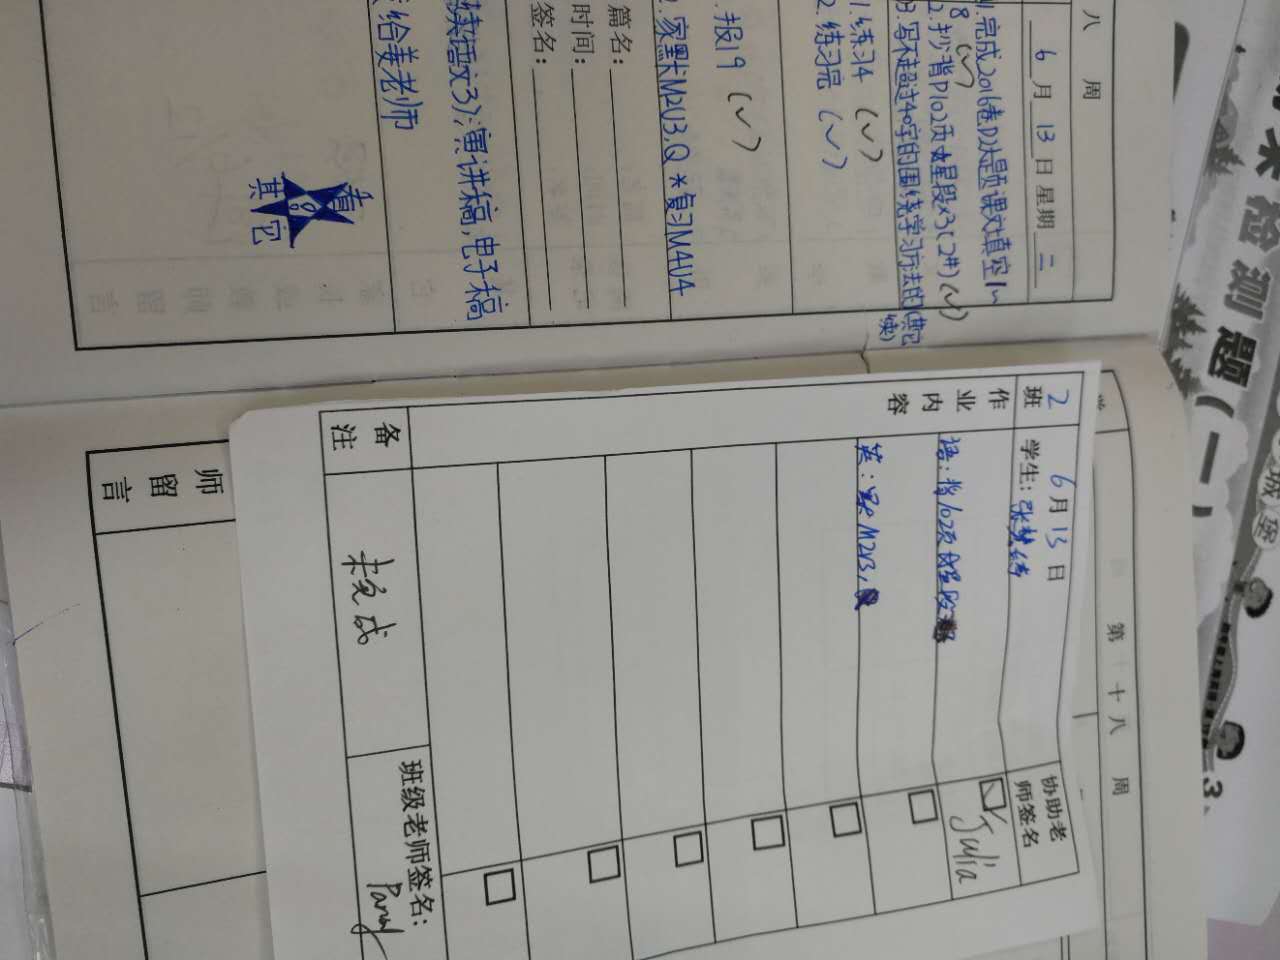 八 周
6 月 13 日 星期 二
1.完成2016卷D大题 课文填空1~
8 (✓)
2.抄、背P102页 ★星段×3(2#) (✓)
3.写不超过40字的围绕学习方法的(其它
续)
1.练习4 (✓)
2.练习完 (✓)
报19 (✓)
2.家默卡M2U3,Q *复习M4U4
篇名:
时间:
签名:
续语文3):演讲稿,电子稿
给姜老师
看
其它
检测题(一)
第十八 周
2 班
6月13日
学生:
协助老
师签名
作业内容
语:背102页
Julia
英:默M2U3,
备注
未完成
班级老师签名:
师留言
3